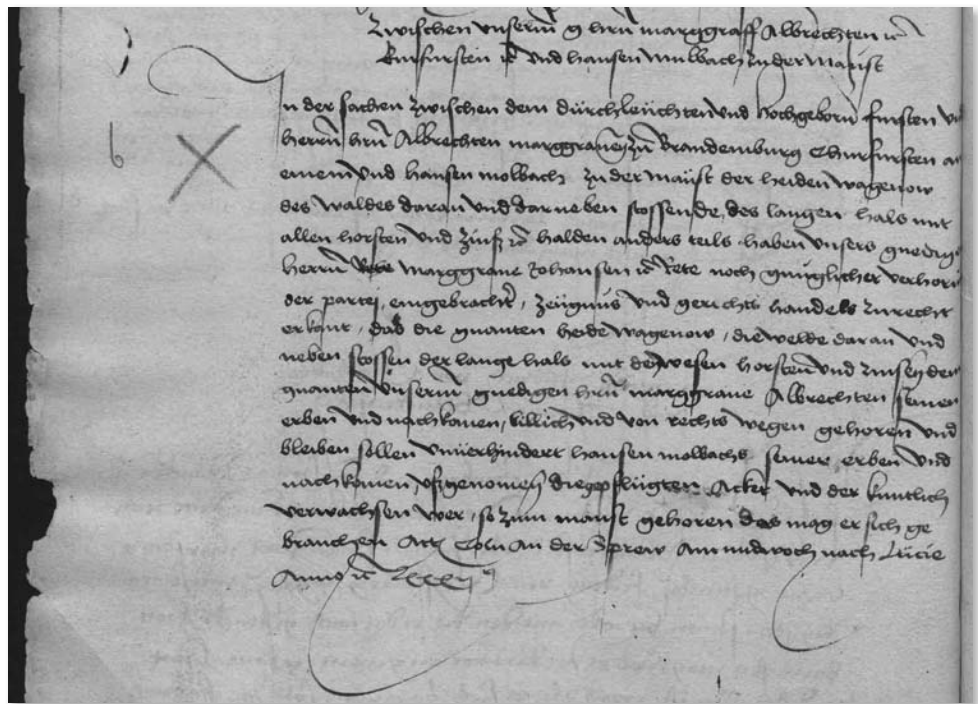 Zwischen unserm g hrn marggraff Albrechten ꝛc
kurfursten ꝛc und hansen mulbach zu der Maust
In der sachen zwischen dem durchleuchten und hochgeborn fursten un
herrn hrn Albrechten marggraven zu Brandemburg Churfursten an
einem und hansen molbach zu der Maust der heiden wagenow
des waldes daran und darneben stossende, des langen hals mit
allen horsten und zinsz ꝛc halden anders teils haben unsers gnedig
herrn marggrave Johansen ꝛc Rete noch gnuglicher verhor
der partej, eingebrachter, zeugnus und gerichts handels zu recht
erkant, das die gnanten heide wagenow, die welde daran und
neben stossen der lange hals mit den wesen horsten und zinsen den
gnanten unserm gnedigen hrn marggrave Albrechten seinen
erben und nachkomen, billich und von rechts wegen gehoren und
bleiben sollen unverhindert hansen molbachs seiner erben und
nachkomen, ußgenomen die gepflugten Acker und der kuntlich
verwachsen wer, so zum maust gehoren das mag er sich ge
brauchen Act Coln an der Sprew Am midwoch nach Lucie
Anno ꝛc
b